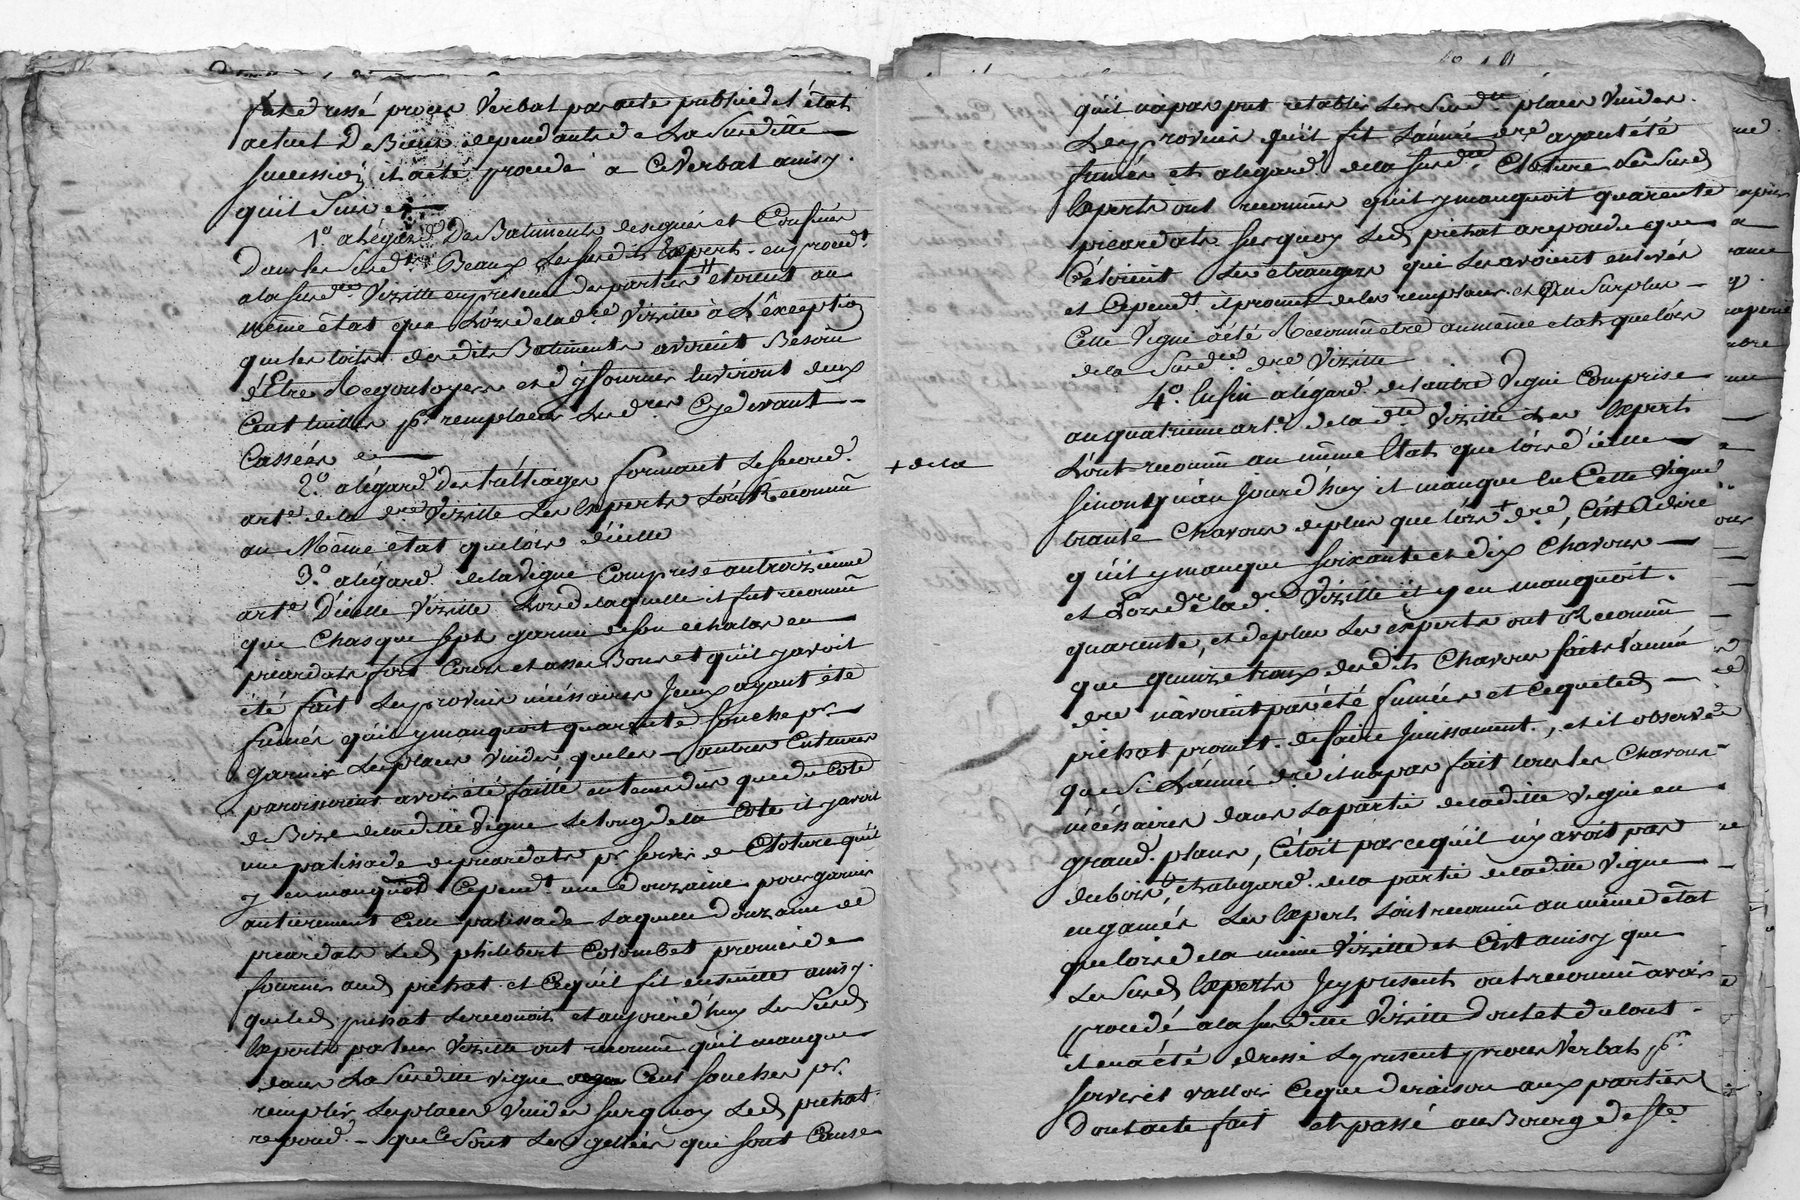 fut dressé proces Verbal par acte public de l'état
actuel De Biens dependants de La Susditte
succession il a été procedé a ce Verbal ainsy.
qu'il Suit et
1º a l'égard Des Batiments designés et Confinés
Dans les Susdts Beaux Lesusdits Expert en procedt
a la susdte Vizitte en presence des parties etoient au
même état que Lors de la dre Vizitte à L'éxception
que les toits desdits Batiments avoient Besoin
d'Etre Regoutoyers et d'y fournir Environt deux
Cent tuilles pr remplacer Les dres Cydevant
Cassées et
2º a légard des tréttiages formant Le second
arte de la dre Vizitte Les Experts L'ont Reconnu
au Même état que lors d'icelle
3º a légard de la vigne Comprise au troizieme
arte D'icelle Vizitte Lors de laquelle il fut reconnu
que Chasque sept garnie de son echalas en
picardats fort Cours et asses Bons et qu'il y avoit
été fait Les provins nécéssaires Jceux ayant été
fumés qu'il y manquoit quarente souche pr
garnir Les places Vuides que les autres Cultures
paroissoient avoir été faitte entendus que du Coté
de Bize de la ditte Vigne Le long de la Cote il y avoit
une palissade de picardats pr servir de Cloture qu'il
y en manquoit Cependt une douzaine pour garnir
antierement Cette palissade Laquelle douzaine de
picardats Led philibert Colombet promis de
fournir aud prichat et Cequ'il fit ensuitte ainsy.
que led prichat Le reconoit et aujourd'huy Les Susd
Experts par leur Vizitte ont reconnu qu'il manque
dans La Susditte vigne Cent souches pr
remplir Les places Vuides surquoy Led prichat
repond que Ce Sont Les gelées qui sont Cause
qu'il n'a pas put retablir Les Susdte places Vuides.
Les provins qu'il fit L'année dre ayant été
fumés et a légard de la susdte Cloture Les Susd
Experts ont reconnus qu'il y manquoit quarente
picardats surquoy Led prichat a repondu que
C'étoient Les etrangers qui Les avoient enlevés
et Cependt il promet de les remplacer et au Surplus
Cette Vigne a été Reconnu etre au même etat que lors
de la Susdte dre Vizitte
4º Enfin a légard de l'autre Vigne Comprise
au quatrieme arte de la dte Vizitte Les Expert
L'ont reconnu au même Etat que lors d'icelle
sinont qu'au Jourd'huy il manque En Cette Vigne
trante Chavons de plus que lors + dre, C'est Adire
+ de la
qu'il y manque soixante et dix Chavons
et Lors de la dre Vizitte il y en manquoit
quarente, et de plus Les experts ont Reconnu
que quinze troux desdits Chavons faits l'année
dre n'avoient pas été fumées et Ceque led
prichat promit de faire Jncessament, et il observe
que Si L'année dre il n'a pas fait tous les Chavons
nécéssaires dans La partie de laditte Vigne en
grand plans, C'étoit parcequ'il n'y avoit pas
du bois, et a légard de la partie de laditte Vigne
en gamés Les Expert L'ont reconnu au même état
que lors de la même Vizitte et C'est ainsy que
Les Susd Experts Jcy present ont reconnu avoir
procedé a la susditte Vizitte Dont et du tout
il en a été dressé Le present proces Verbal pr
servir et valloir Ceque de raison aux parties
Dont acte fait et passé au Bourg de Ste